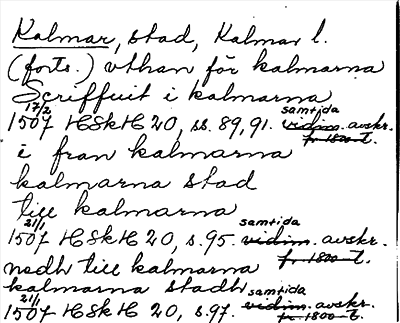 Kalmar, stad, Kalmar l.
(forts.) vthan för kalmarna
Scriffuit i kalmarna
17/2 samtida
1507 HSkH 20, ss. 89, 91. vidim. avskr.
fr. 1800-t.
i fran kalmarna
kalmarna stad
till kalmarna
21/1 samtida
1507 HSkH 20, s. 95. vidim. avskr.
fr. 1800-t.
nedh till kalmarna
kalmarna stadh samtida
21/1
1507 HSkH 20, s. 97. vidim. avskr.
fr. 1800-t.